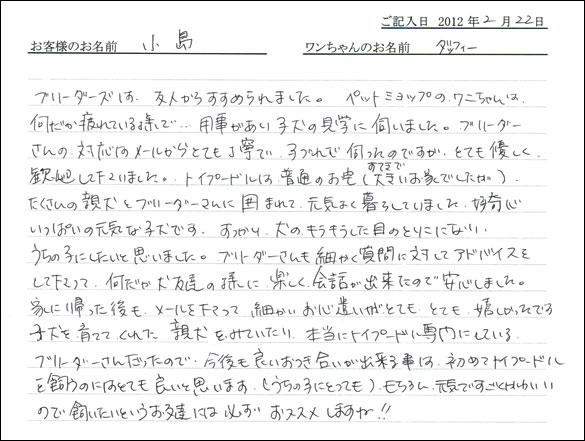 ご記入日 2012年2月22日
お客様のお名前 小島 ワンちゃんのお名前 ダッフィー
ブリーダーズは、友人からすすめられました。 ペットショップの、ワンちゃんは、
何だか疲れている様で… 用事があい子犬の見学に伺いました。ブリーダー
さんの対応はメールからとても丁寧で、子づれで伺ったのですが、とても優しく
歓迎して下さいました。トイプードルは、普通のお宅(すてきで大きいお家でしたが)、
たくさんの親犬とブリーダーさんに囲まれて、元気よく暮らしていました。好奇心
いっぱいの元気な子犬です。すっかり、犬の
うちの子にしたいと思いました。ブリーダーさんも細かく質問に対してアドバイスを
して下さって、何だか犬友達の様に楽しく会話が出来たので安心しました。
家に帰った後も、メールを下さって 細かいお心遣いがとても、とても、嬉しかったです
子犬を育ててくれた親犬をみていたり、本当にトイプードル専門にしている
ブリーダーさんだったので、今後も良いおつき合いが出来る事は、初めてトイプードル
を飼うのにはとても良いと思います。(うちの子にとっても)もちろん、元気ですごくかわいい
ので飼いたいというお友達には必ずおススメしますね!!